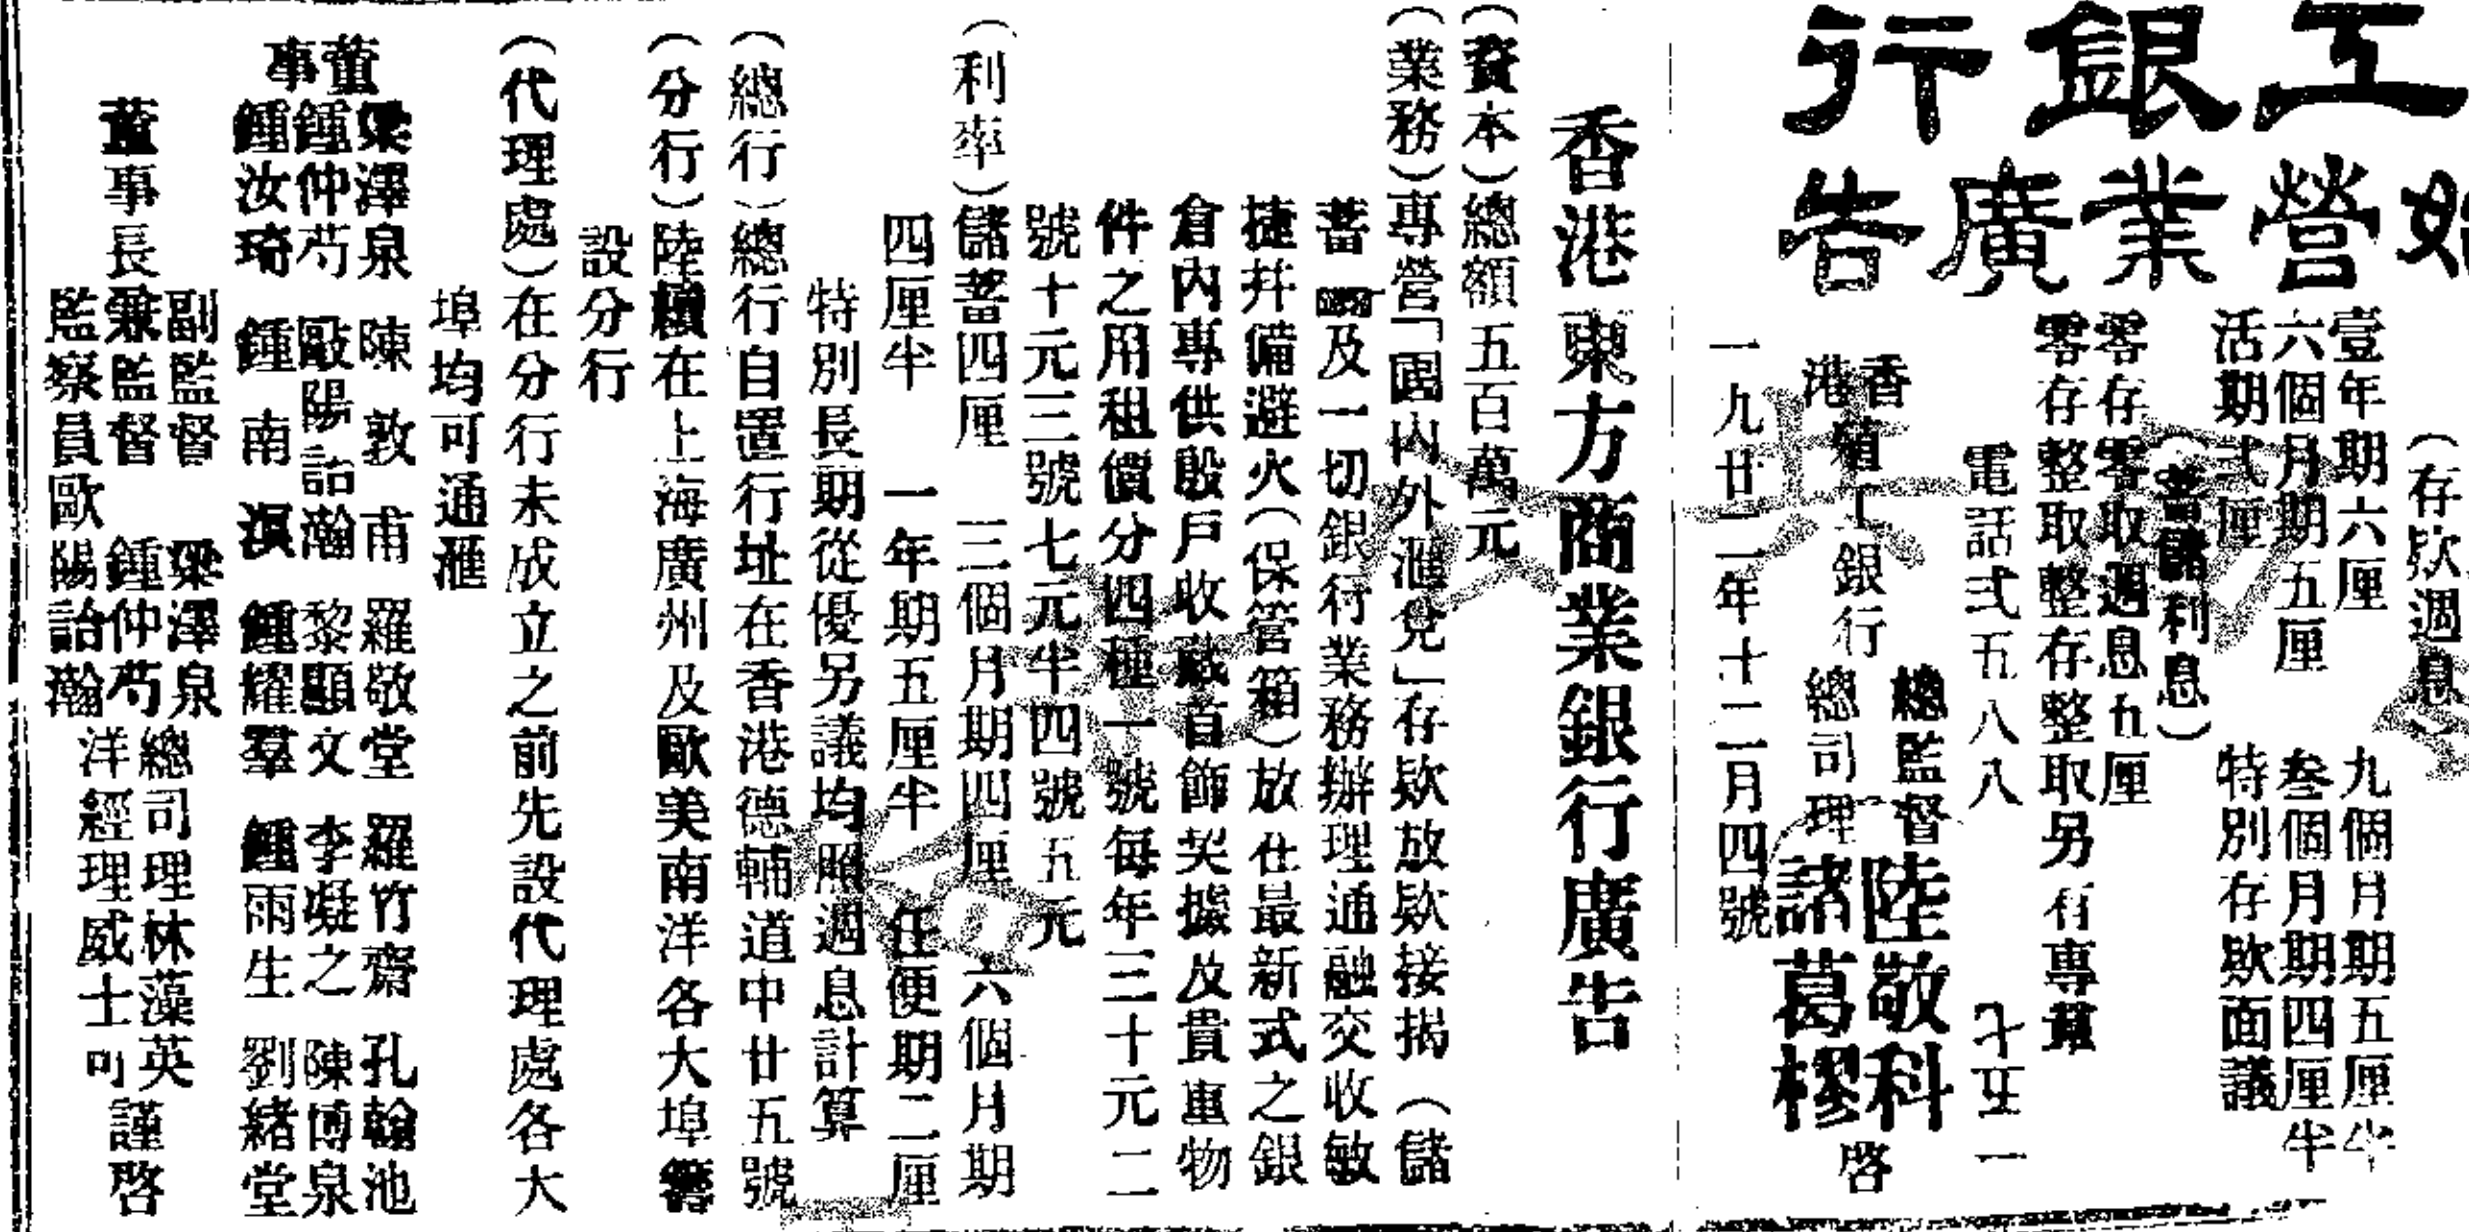 工銀行
始營業廣告
(存欵週息)
壹年期六厘 九個月期五厘半
六個月期五厘 叁個月期四厘半
活期弍厘 特別存欵面議
(蓄儲利息)
零存零取週息五厘
零存整取整存整取另有專章
電話弍五八八
香港殖工銀行 總監督 陸敬科 總司理 諸葛樛 啓
一九廿二年十二月四號
香港東方商業銀行廣告
(資本)總額五百萬元
(業務)專營「國內外滙兌」存欵放欵接揭(儲
蓄 及一切銀行業務辦理通融交收敏
捷幷備避火(保管箱)放在最新式之銀
倉內專供殷戶收藏首飾契據及貴重物
件之用租價分四種一號每年三十元二
號十元三號七元半四號五元
(利率)儲蓄四厘 三個月期四厘 六個月期
四厘半 一年期五厘半 任便期二厘
特別長期從優另議均照週息計算
(總行)總行自置行址在香港德輔道中廿五號
(分行)陸續在上海廣州及歐美南洋各大埠籌
設分行
(代理處)在分行未成立之前先設代理處各大
埠均可通滙
董事
梁澤泉 陳敦甫 羅敬堂 羅竹齋 孔翰池
鍾仲芍 歐陽詒瀚 黎顯文 李凝之 陳博泉
鍾汝琦 鍾南溟 鍾耀羣 鍾雨生 劉緒堂
副監督 梁澤泉 總司理林藻英
董事長兼監督 鍾仲芍 洋經理威士 謹啓
監察員歐陽詒瀚